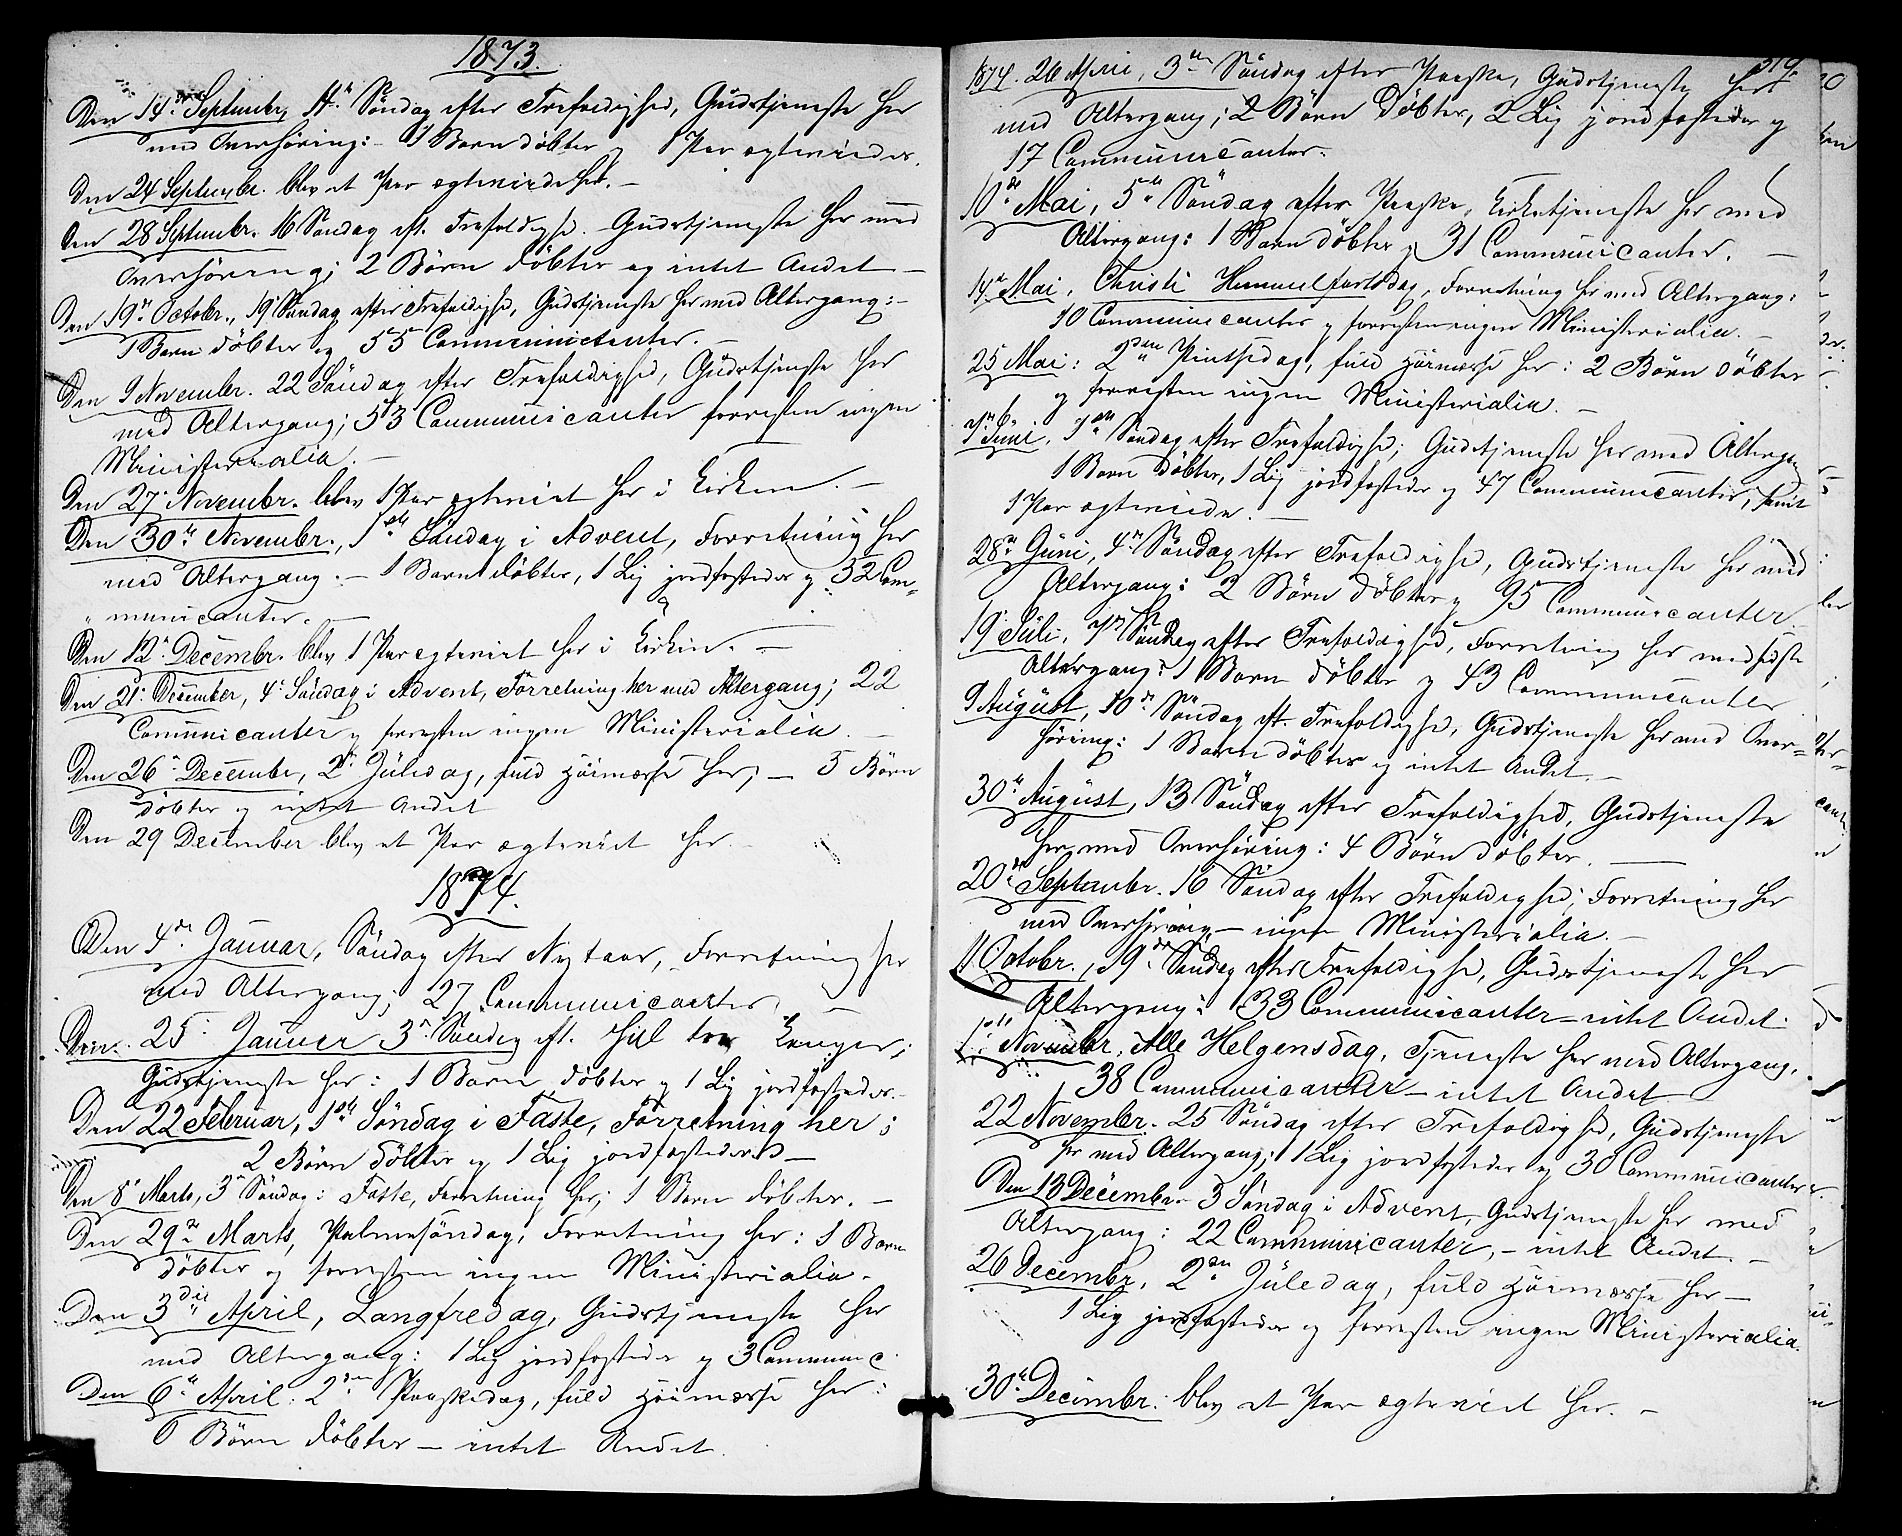 1873.
Den 14de Septembr, 14de Söndag efter Trefoldighed, Gudstjeneste her
med Overhöring: 1 Barn döbter og 1 Par egteviede.
Den 24 Septembr. blev et Par egteviede her. –
Den 28 Septembr. 16 Söndag eft. Trefoldighd. Gudstjeneste her med
Overhöring; 2 Börn döbter og intet Andet –
Den 19de Octobr., 19 Söndag efter Trefoldighd, Gudstjeneste her med Altergang: –
1 Barn döbter og 55 Communicanter. –
Den 9 Novembr. 22 Söndag efter Trefoldighed, Gudstjeneste her
med Altergang; 53 Communicanter forresten ingen
Ministerialia. –
Den 27 Novembr. blev 1 Par egteviet her i Kirken. –
Den 30te Novembr., 1ste Söndag i Advent, Forretning her
med Altergang: – 1 Barn döbter, 1 Lig jordfæstedes og 32 Com-
municanter. –
Den 12 Decembr. blev 1 Par egteviet her i Kirken. –
Den 21 December, 4 Söndag i Advent, Forretning her med Altergang; 22
Communicanter og forresten ingen Ministerialia. –
Den 26 Decembr, 2 Juledag, fuld Höimesse her; – 5 Börn
döbter og intet Andet
Den 29 December blev et Par egteviet her. –
1874.
Den 4de Januar, Söndag efter Nytaar, Forretning her
med Altergang; 27 Communicanter. –
Den 25 Januar 3 Söndag eft. Hel tre Konger;
Gudstjeneste her: 1 Barn döbter og 1 Lig jordfæstedes. –
Den 22 Februar, 1ste Söndag i Faste, Forretning her;
2 Börn döbter og 1 Lig jordfæstedes –
Den 8 Marts, 3 Söndag i Faste, Forretning her; 1 Barn döbter. –
Den 29de Marts, Palmesöndag, Forretning her: 1 Barn
döbter og forresten ingen Ministerialia. –
Den 3die April, Langfredag, Gudstjeneste her
med Altergang: 1 Lig jordfæstedes og 3 Communic.
Den 6te April: 2den Paaskedag, fuld Höimesse her:
6 Börn döbter – intet Andet.
319.
1874. 26 April, 3die Söndag efter Paaske, Gudstjeneste her
med Altergang; 2 Börn döbter, 2 Lig jordfæstedes og
17 Communicanter.
10de Mai, 5te Söndag efter Paaske, Kirketjeneste her med
Altergang: 1 Barn döbter og 31 Communicanter. –
14de Mai, Christi Himmelfartsdag, Forretning her med Altergang:
10 Communicanter og forresten ingen Ministerialia. –
25 Mai: 2den Pintsedag, fuld Höimesse her: 2 Börn döbter
og forresten ingen Ministerialia. –
7 Juni, 1ste Söndag efter Trefoldighd; Gudstjeneste her med Altergang
1 Barn döbter, 1 Lig jordfæstedes og 47 Communicanter, samt
1 Par egteviede. –
28de Juni, 4de Söndag efter Trefoldighed, Gudstjeneste her med
Altergang: 2 Börn döbter og 95 Communicanter.
19 Juli, 7de Söndag efter Trefoldighed, Forretning her med sidste
Altergang: 1 Barn döbter og 43 Communicanter
9 August, 10de Söndag eft. Trefoldighed, Gudstjeneste her med Over-
höring: 1 Barn döbter og intet Andet. –
30te August, 13 Söndag efter Trefoldighed, Gudstjeneste
her med Overhöring: 4 Börn döbter. –
20de Septembr. 16 Söndag efter Trefoldighed; Forretning her
med Overhöring – ingen Ministerialia. –
11 Octobr., 19de Söndag efter Trefoldighed, Gudstjeneste her
Altergang: 33 Communicanter – intet Andet.
1ste Novembr, Alle Helgensdag, Tjeneste her med Altergang,
38 Communicanter – intet Andet
22 Novembr. 25 Söndag efter Trefoldighed, Gudstjeneste
her med Altergang; 1 Lig jordfæstedes og 30 Communicanter.
Den 13 Decembr. 3 Söndag i Advent, Gudstjeneste her med
Altergang: 22 Communicanter, – intet Andet. –
26 Decembr, 2den Juledag, fuld Höimesse her –
1 Lig jordfæstedes og forresten ingen Ministerialia.
30te Decembr. blev et Par egteviet her. –